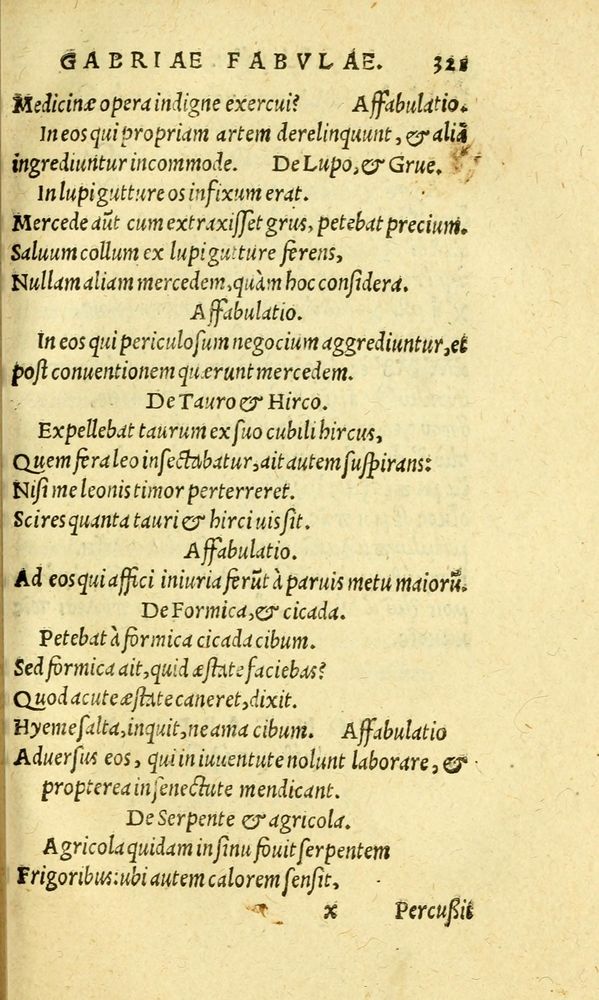 GABRIAE FABVLAE. 321
Medicinæ opera indigne exercui? Affabulatio.
In eos qui propriam artem derelinquunt, & aliā
ingrediuntur incommode. De Lupo, & Grue.
In lupi gutture os infixum erat.
Mercede aūt cum extraxisset grus, petebat precium.
Saluum collum ex lupi gutture ferens,
Nullam aliam mercedem, quàm hoc considera.
Affabulatio.
In eos qui periculosum negocium aggrediuntur, et
post conuentionem quærunt mercedem.
De Tauro & Hirco.
Expellebat taurum ex suo cubili hircus,
Quem fera leo insectabatur, ait autem suspirans:
Nisi me leonis timor perterreret.
Scires quanta tauri & hirci uis sit.
Affabulatio.
Ad eos qui affici iniuria ferūt à paruis metu maiorū.
De Formica, & cicada.
Petebat à formica cicada cibum.
Sed formica ait, quid æstate faciebas?
Quod acute æstate caneret, dixit.
Hyeme salta, inquit, ne ama cibum. Affabulatio
Aduersus eos, qui in iuuentute nolunt laborare, &
propterea in senectute mendicant.
De Serpente & agricola.
Agricola quidam in sinu fouit serpentem
Frigoribus: ubi autem calorem sensit,
x Percußit